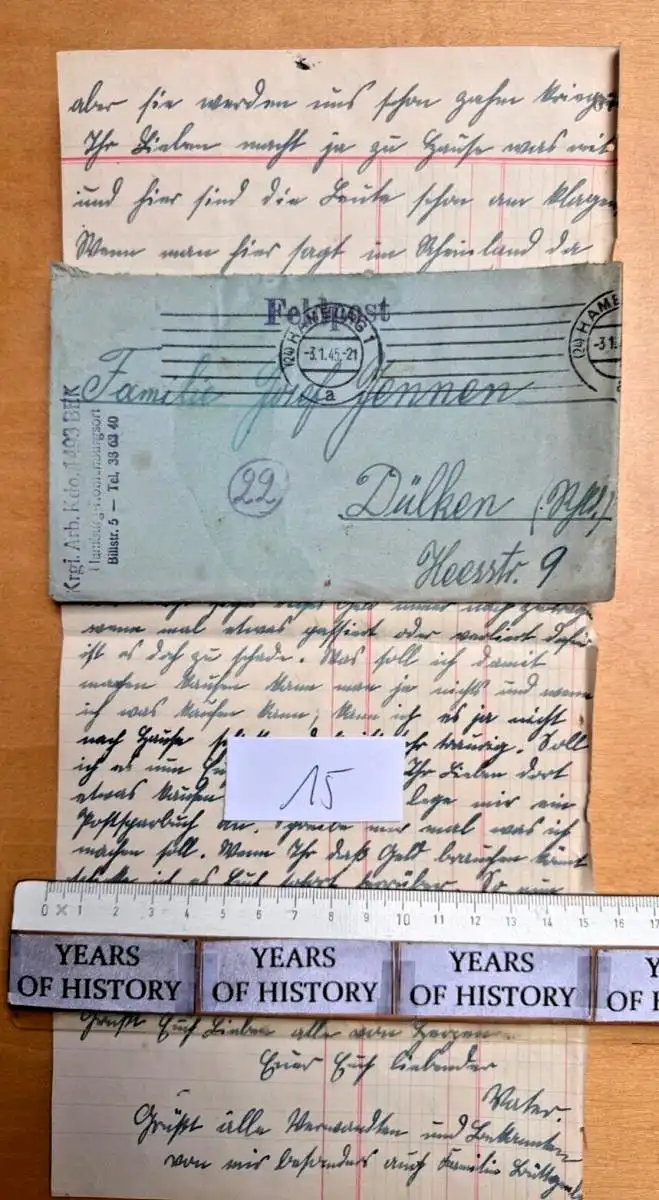 aber sie werden uns schon zahm kriegen
Ihr Lieben macht ja zu Hause was mit
und hier sind die Leute schon am klagen
Wenn man hier sagt im Rheinland da
Feldpost
(24) HAMBURG 1
-3.1.45.-21
a
(24) HAMB
-3.1.
a
Familie Josef Jennen
Krgf. Arb. Kdo. 1493 BEK
Hamburg-Rothenburgsort
Billstr. 5 — Tel. 38 63 40
22
Dülken (Rhld.)
Heesstr. 9
Geld immer nach
wenn mal etwas passiert oder verliert dafür
ist es doch zu schade. Was soll ich damit
machen kaufen kann man ja nichts und wenn
ich was kaufen kann, kann ich es ja nicht
nach Hause traurig. Soll
ich es nun Ihr Lieben dort
etwas kaufen lege mir ein
Postsparbuch an. Schreibe mir mal was ich
machen soll. Wenn Ihr daß Geld brauchen könnt
schicke ich es Euch sofort herüber. So nun
15
0 1 2 3 4 5 6 7 8 9 10 11 12 13 14 15 16 17
YEARS OF HISTORY
YEARS OF HISTORY
YEARS OF HISTORY
Y OF H
Grüßt Euch Lieben alle von Herzen
Euer Euch liebender
Vater.
Grüßt alle Verwandten und Bekannten
von mir besonders auch Familie